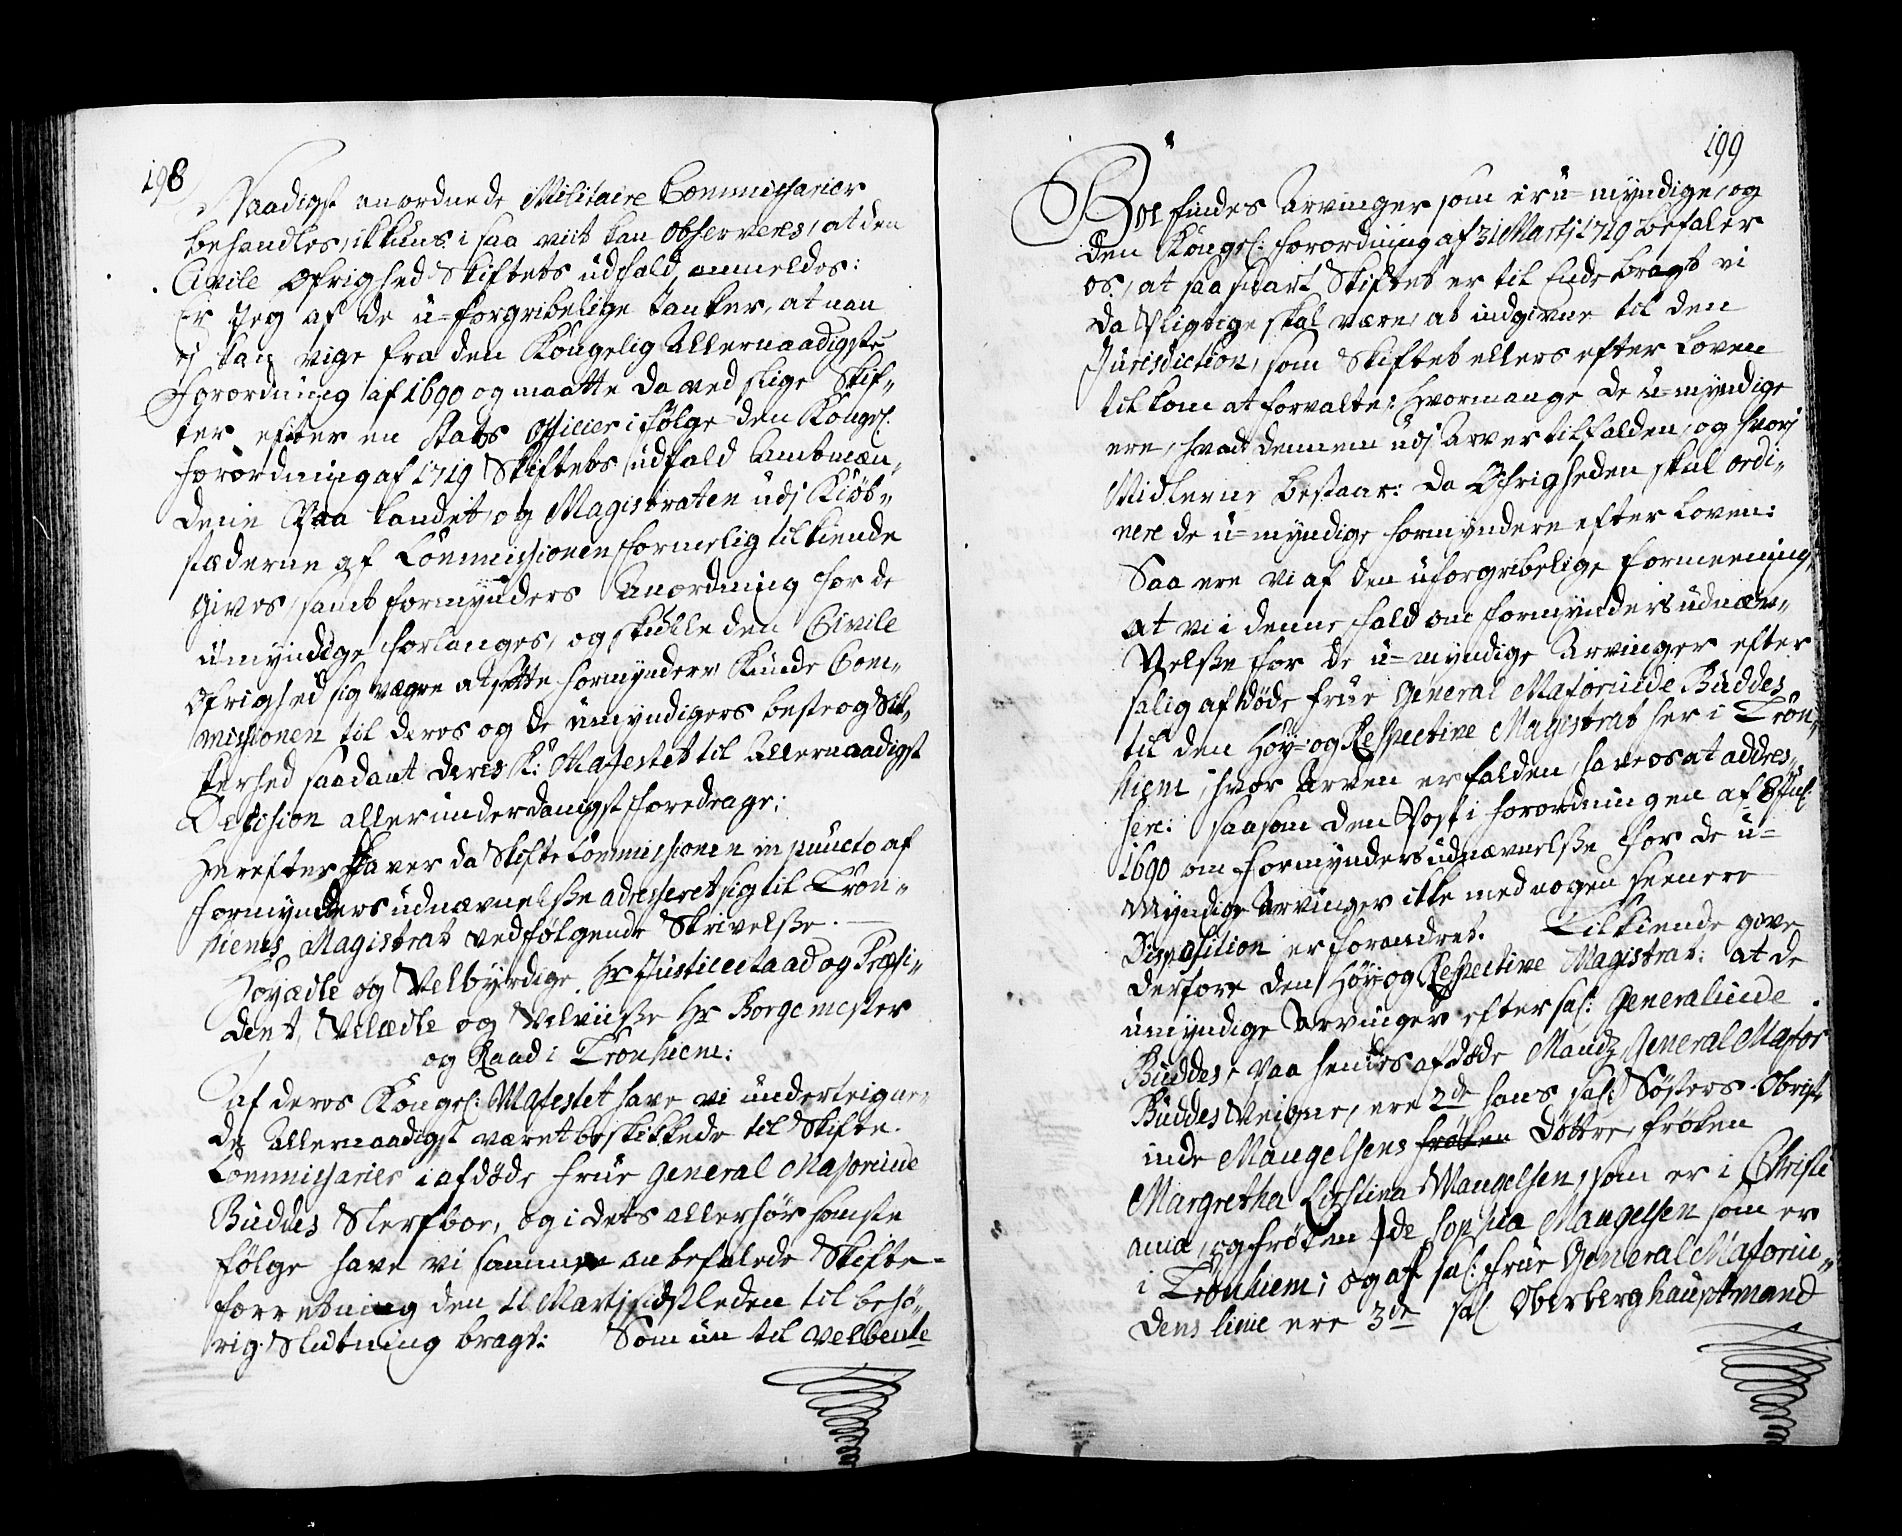 198
Naadigst anordnede Militaire Commissarier
behandles, ikkuns i saa viit kan observeres, at den
Civile Øfrighed Skiftets udfald anmeldes:
Er Jeg af de u=forgribelige tanker, at man
ej kan vige fra den Kongelig Allernaadigste
Forordning af 1690 og maatte da ved slige Skif„
ter efter en Stabs Officier i følge den Kongel:
forordning af 1719 Skiftets udfald Ambtmæn„
dene Paa Landet, og Magistraten udj Kiøb„
stæderne af Commissionen formelig tilkiende
gives, samt formynders Anordning for de
umyndige forlanges, og skulle den Civile
Øfrighed sig vægre at sætte formyndere Kunde Com„
missionen til deres og de umyndigers beste og Sik„
kerhed saadant Deres K: Majestet til Allernaadigst
Decision allerunderdanigst foredrage;
Herefter Haver da Skifte Commissionen in puncto af
formynders udnævnelsse adresseret sig til Tron„
hiems Magistrat ved følgende Skrivelsse. —
Høyædle og Velbyrdige Hr Justicetraad og Præsi„
dent, Velædle og Velviisse Hr Borgemester
og Raad i Tronhiem:
Af deres Kongel: Majestet have vi underteigne„
de Allernaadigst været beskikkede til Skifte.
Commissarier i afdøde Frue General Majorinde
Buddes Sterfboe, og i dets allerhørsomste
følge have vi samme anbefalede Skifte=
forretning den 11 Martj sidstleden til behø„
rig Slutning bragt: Som nu til Velbente
199
Boe findes Arvinger som er u=myndige, og
den Kongel: forordning af 31 Martj 1719 befaler
os, at saa snart Skiftet er til Ende bragt vi
da Pligtige skal være, at indgivne til den
Jurisdiction, som Skiftet ellers efter Loven
tilkom at forvalte: Hvormange de u=myndige
ere, hvadt dennem udj Arver tilfalden, og hvorj
Midlerne bestaar: da Øfrigheden skal ordi„
nere de u=myndige formyndere efter Loven:
Saa ere vi af den uforgribelige formeening,
at vi i denne fald om formynders udnæv„
nelsse for de u=myndige Arvinger efter
salig afdøde Frue General Majorinde Buddes
til den Høy= og Respective Magistrat her i Tron„
hiem, hvor Arven er falden, have os at addres„
sere: saasom den Post i forordningen af
1690 om formynders udnævnelsse for de u=
Myndige Arvinger ikke med nogen seenere
Disposition er forandret. Tilkiende give
derfore den Høy og Respective Magistrat: at de
umyndige Arvinger efter sal: Generalinde
Buddes paa hendes afdøde Mandz General Major
Buddes Veigne, ere 2de hans sal: Søsters Obrist„
inde Mangelsens frøken Døttre, frøken
Margretha Cirstina Mangelsen, som er i Christi
ania, og frøken Ide Sophia Mangelsen som er
i Tronhiem; og af sal: frue General Majorin„
dens linie ere 3de sal Oberberghauptmand